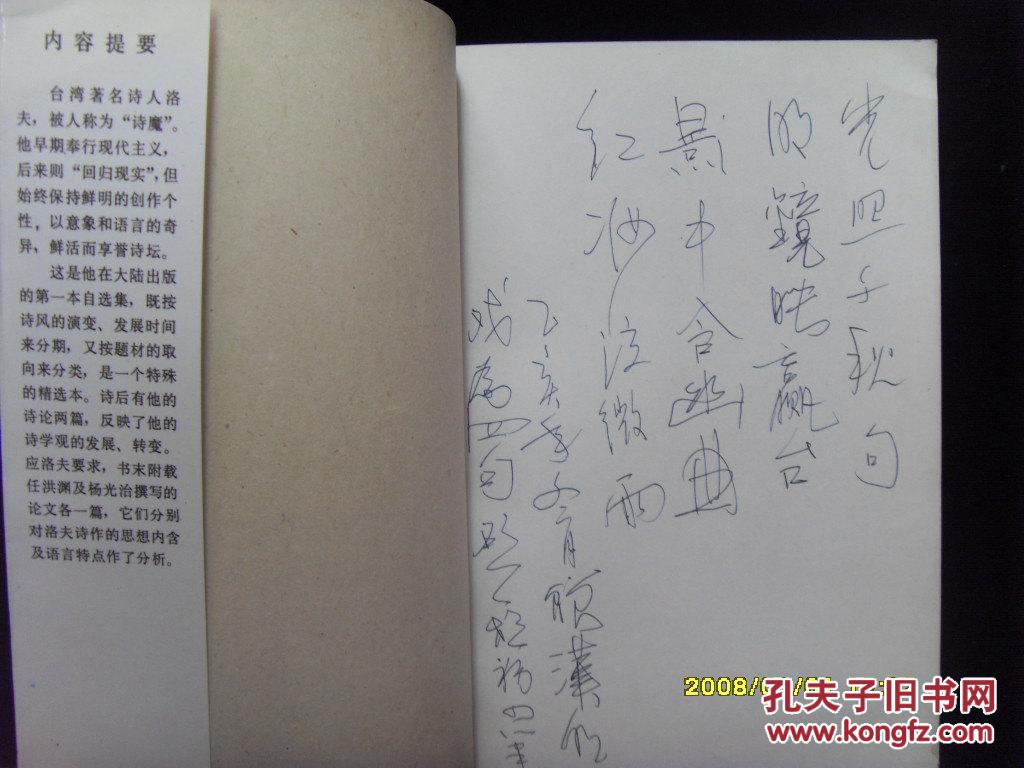 内容提要
台湾著名诗人洛
夫，被人称为“诗魔”。
他早期奉行现代主义，
后来则“回归现实”，但
始终保持鲜明的创作个
性，以意象和语言的奇
异，鲜活而享誉诗坛。
这是他在大陆出版
的第一本自选集，既按
诗风的演变、发展时间
来分期，又按题材的取
向来分类，是一个特殊
的精选本。诗后有他的
诗论两篇，反映了他的
诗学观的发展、转变。
应洛夫要求，书末附载
任洪渊及杨光治撰写的
论文各一篇，它们分别
对洛夫诗作的思想内含
及语言特点作了分析。
光照千秋句
明镜映嬴台
景中含幽曲
红妆泣微雨
乙亥年
成为四句
2008/
孔夫子旧书网
www.kongfz.com